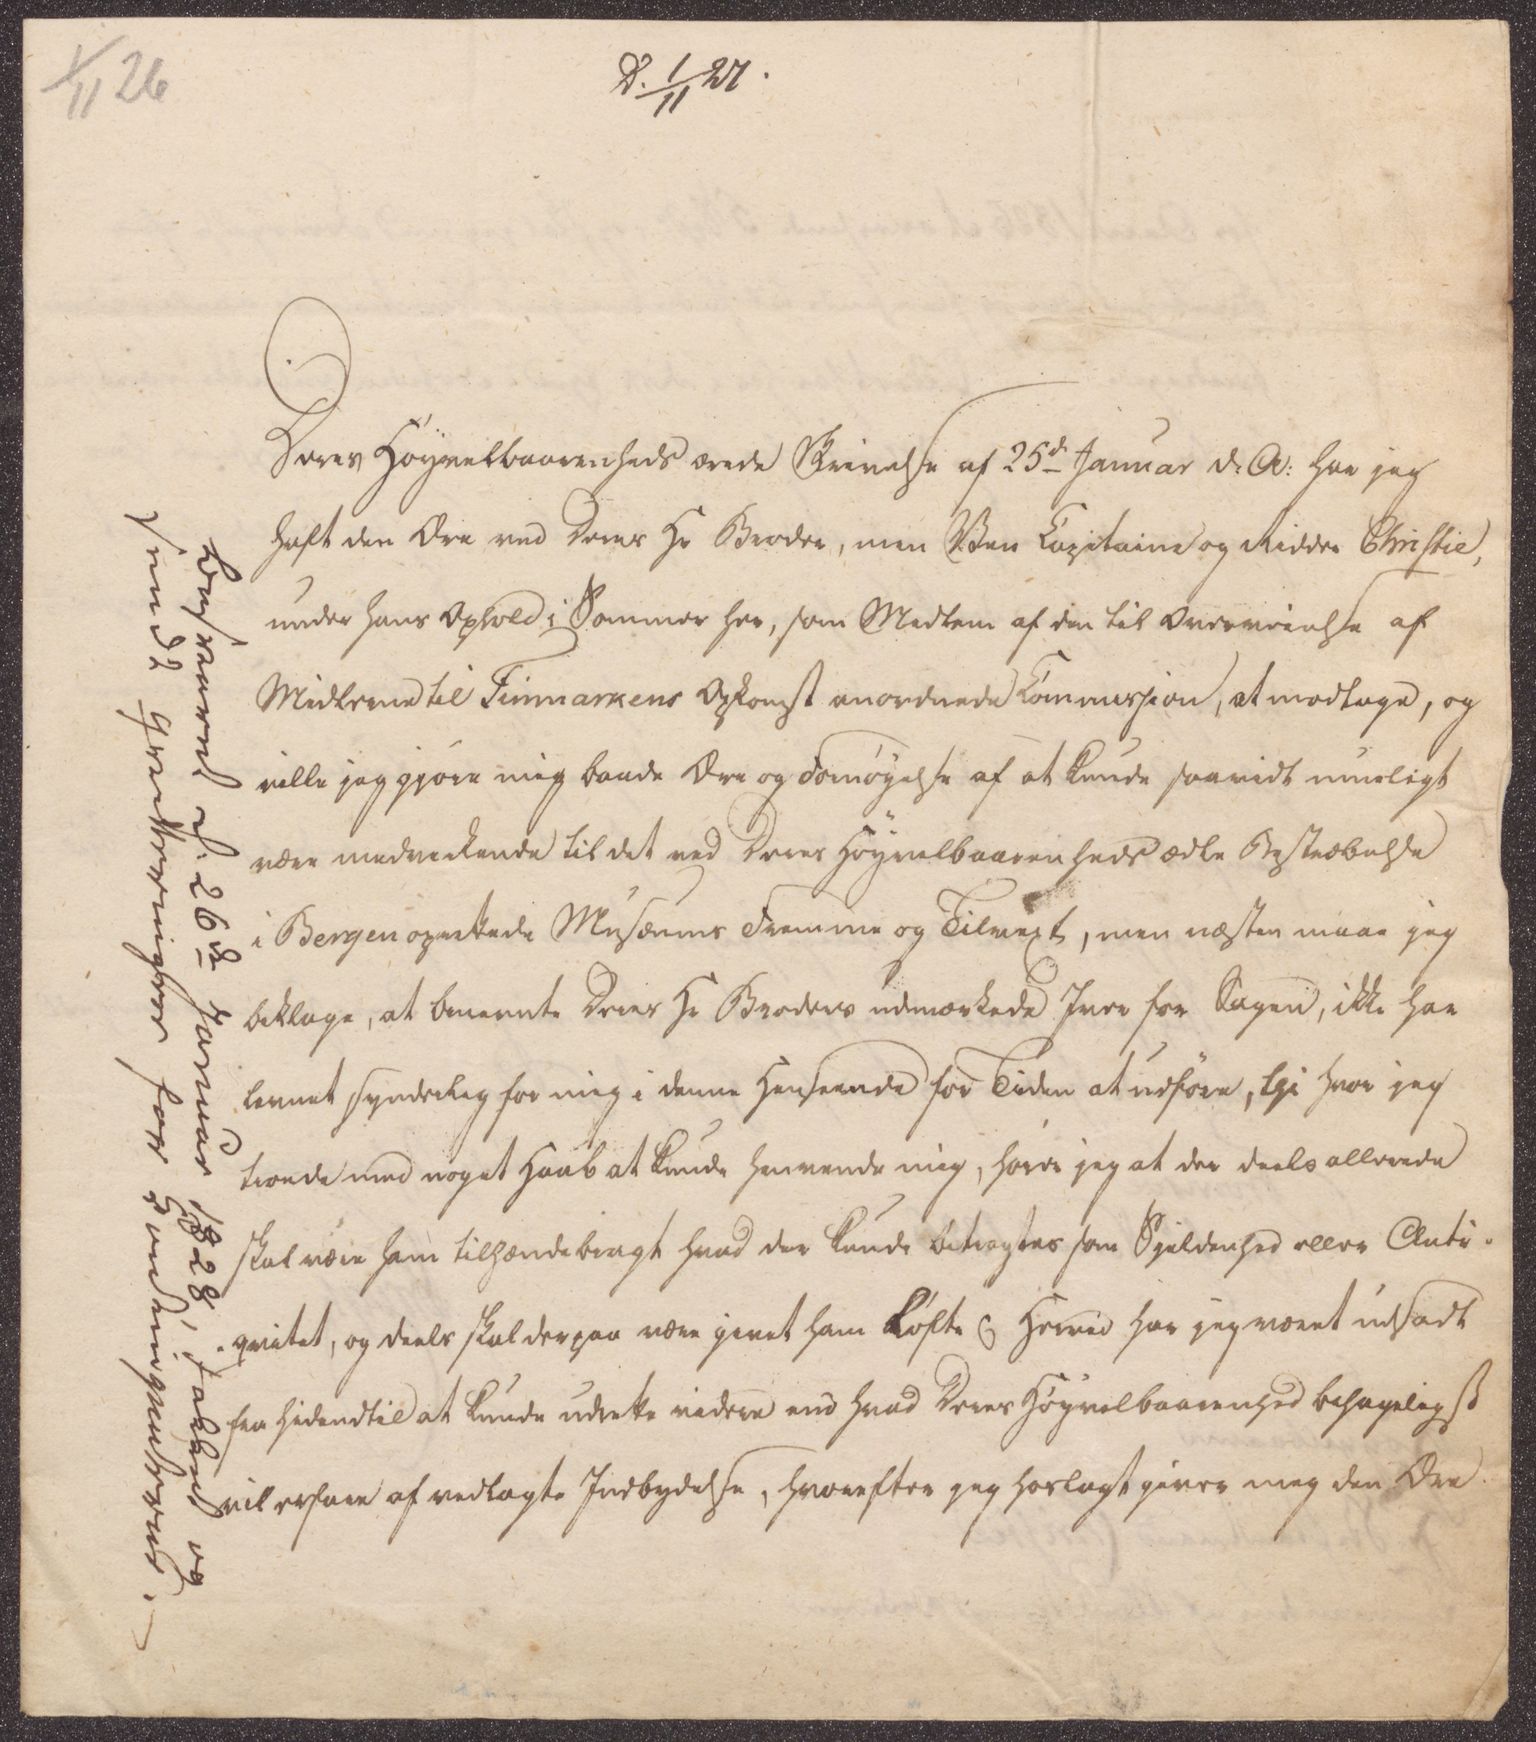 1/11 26
D. 1/11 27.
Deres Höyvelbaarenheds ærede Skrivelse af 25d Januar d: A: har jeg
haft den Ære ved Deres Hr Broder, min Ven Capitaine og Ridder Christie,
under hans Ophold i Sommer her, som Medlem af den til Overveielse af
Midlerne til Finmarkens Opkomst anordnede Commission, at modtage, og
vilde jeg gjöre mig baade Ære og Fornöyelse af at kunde saavidt mueligt
være medvirkende til det ved Deres Höyvelbaarenheds ædle Bestræbelse
i Bergen oprettede Musæums Fremme og Tilvext, men næsten maae jeg
beklage, at benevnte Deres Hr Broders udmærkede Iver for Sagen, ikke har
levnet synderlig for mig i denne Henseende for Tiden at udföre, thi hvor jeg
troede med noget Haab at kunde henvende mig, hörer jeg at der deels allerede
skal være ham tilhændebragt hvad der kunde betragtes som Sjeldenhed eller Anti-
-qvitet, og deels skal derpaa være givet ham Löfte. Herved har jeg været udsadt
fra hidendtil at kunde udrette videre end hvad Deres Höyvelbaarenhed behageligst
vil erfare af vedlagte Indbydelse, hvorefter jeg herlagt giver mig den Ære
Besvaret d. 26de Januar 1828, takket og
sendt Qvitteringer for Contingenterne.